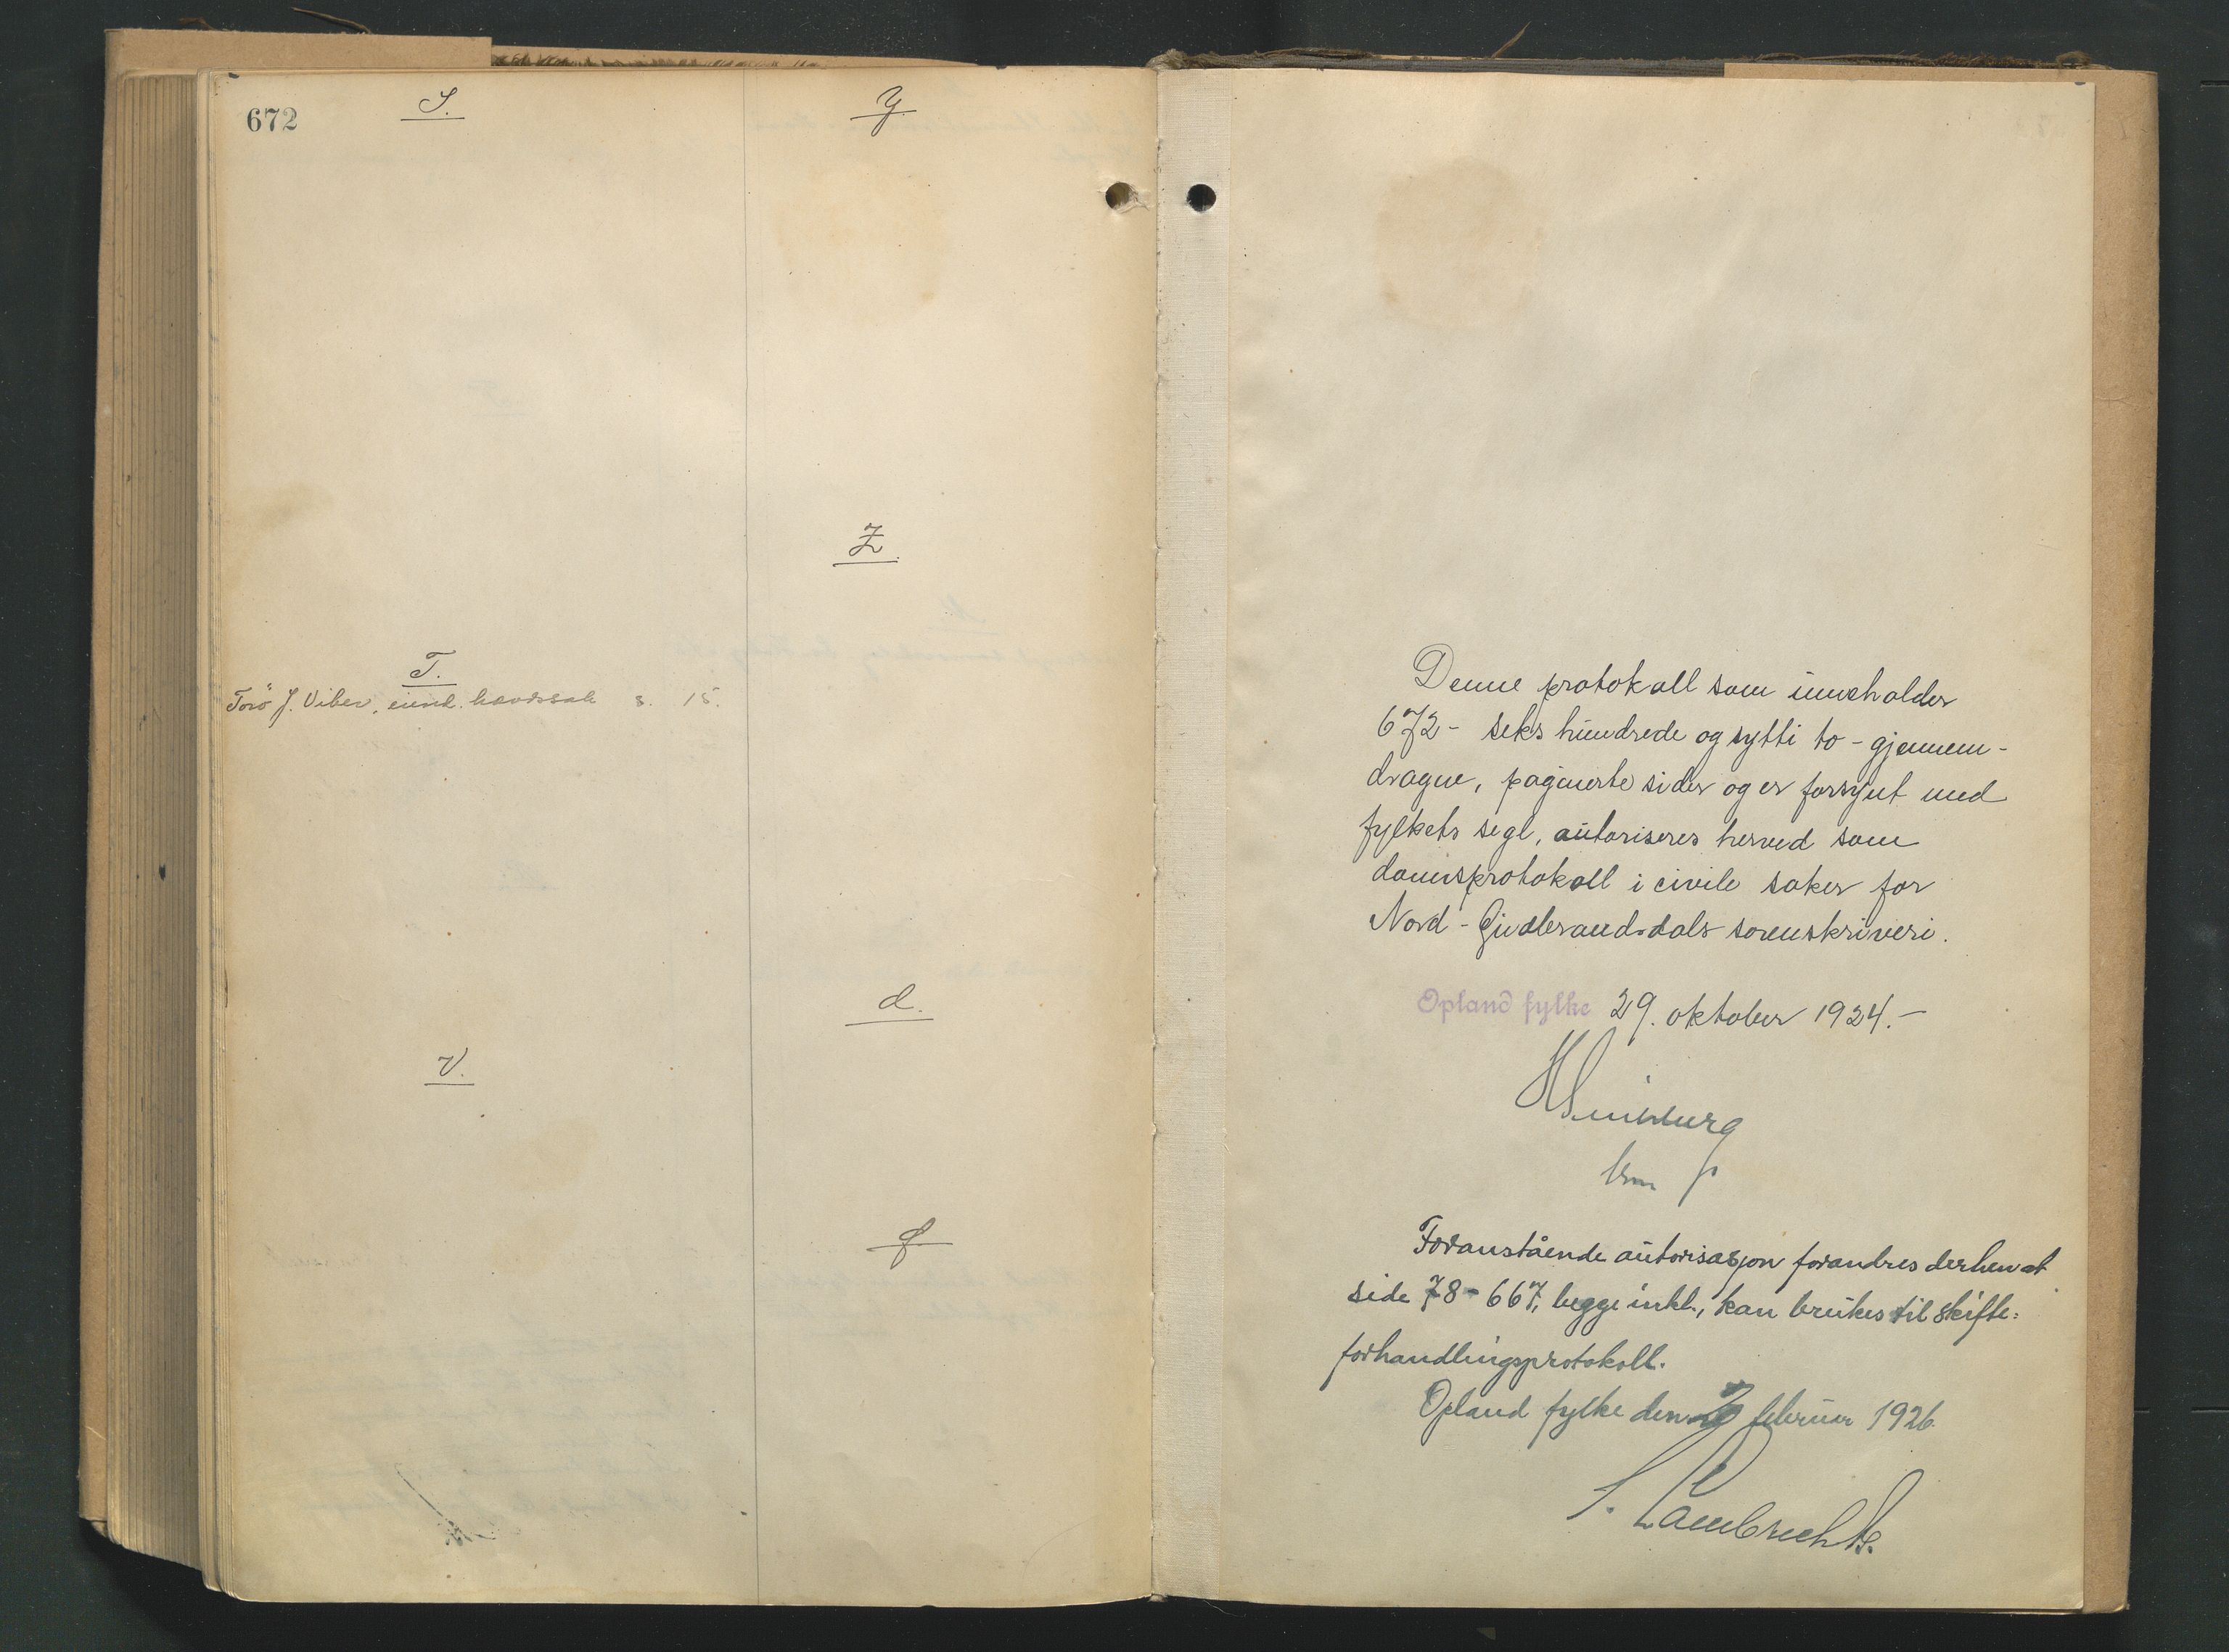 672
S.
T.
Torö J. Viber, eiend. havdssak s. 15.
V.
Y.
Z.
d.
f.
Denne protokoll som inneholder
672 - seks hundrede og sytti to - gjennem-
dragne, paginerte sider og er forsynt med
fylkets segl, autoriseres herved som
domsprotokoll i civile saker for
Nord-Gudbrandsdals sorenskriveri.
Opland fylke 29. oktober 1924.-
Foranstående autorisasjon forandres derhen at
side 78-667, begge inkl., kan brukes til skifte=
forhandlingsprotokoll.
Opland fylke den 2 februar 1926.
S. Lambrechts.